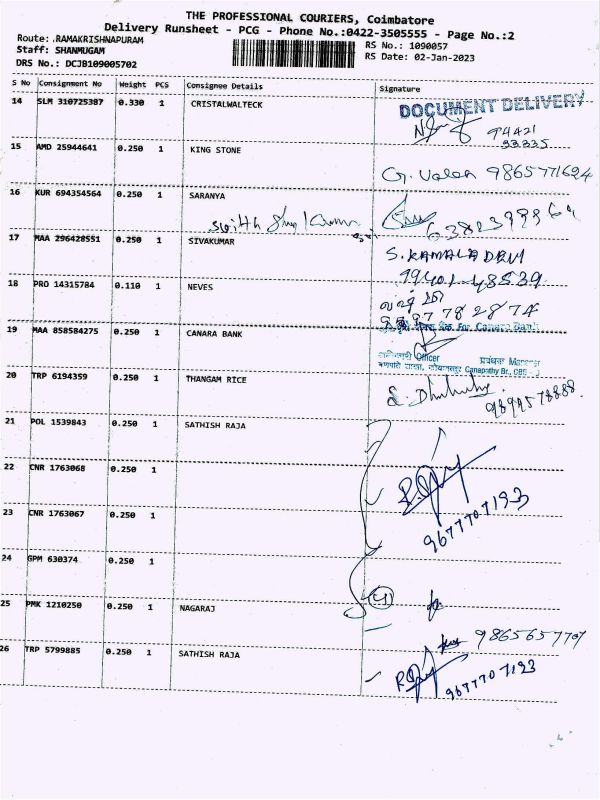 THE PROFESSIONAL COURIERS, Coimbatore
Delivery Runsheet - PCG - Phone No.:0422-3505555 - Page No.:2
Route: .RAMAKRISHNAPURAM
RS No.: 1090057
Staff: SHANMUGAM
RS Date: 02-Jan-2023
DRS No.: DCJB109005702
S No Consignment No Weight PCS Consignee Details Signature
14 SLM 310725387 0.330 1 CRISTALWALTECK DOCUMENT DELIVERY
94421
33335
15 AMD 25944641 0.250 1 KING STONE
G. 9865771624
16 KUR 694354564 0.250 1 SARANYA
17 MAA 296428551 0.250 1 SIVAKUMAR S. KAMALA DEVI
99401-48539
18 PRO 14315784 0.110 1 NEVES
19 MAA 858584275 0.250 1 CANARA BANK
For Canara Bank
Officer प्रबंधक Manager
Ganapathy Br., CBE
20 TRP 6194359 0.250 1 THANGAM RICE
9899578888
21 POL 1539843 0.250 1 SATHISH RAJA
22 CNR 1763068 0.250 1
23 CNR 1763067 0.250 1
9677707193
24 GPM 630374 0.250 1
25 PMK 1210250 0.250 1 NAGARAJ
9865657707
26 TRP 5799885 0.250 1 SATHISH RAJA
9677707193